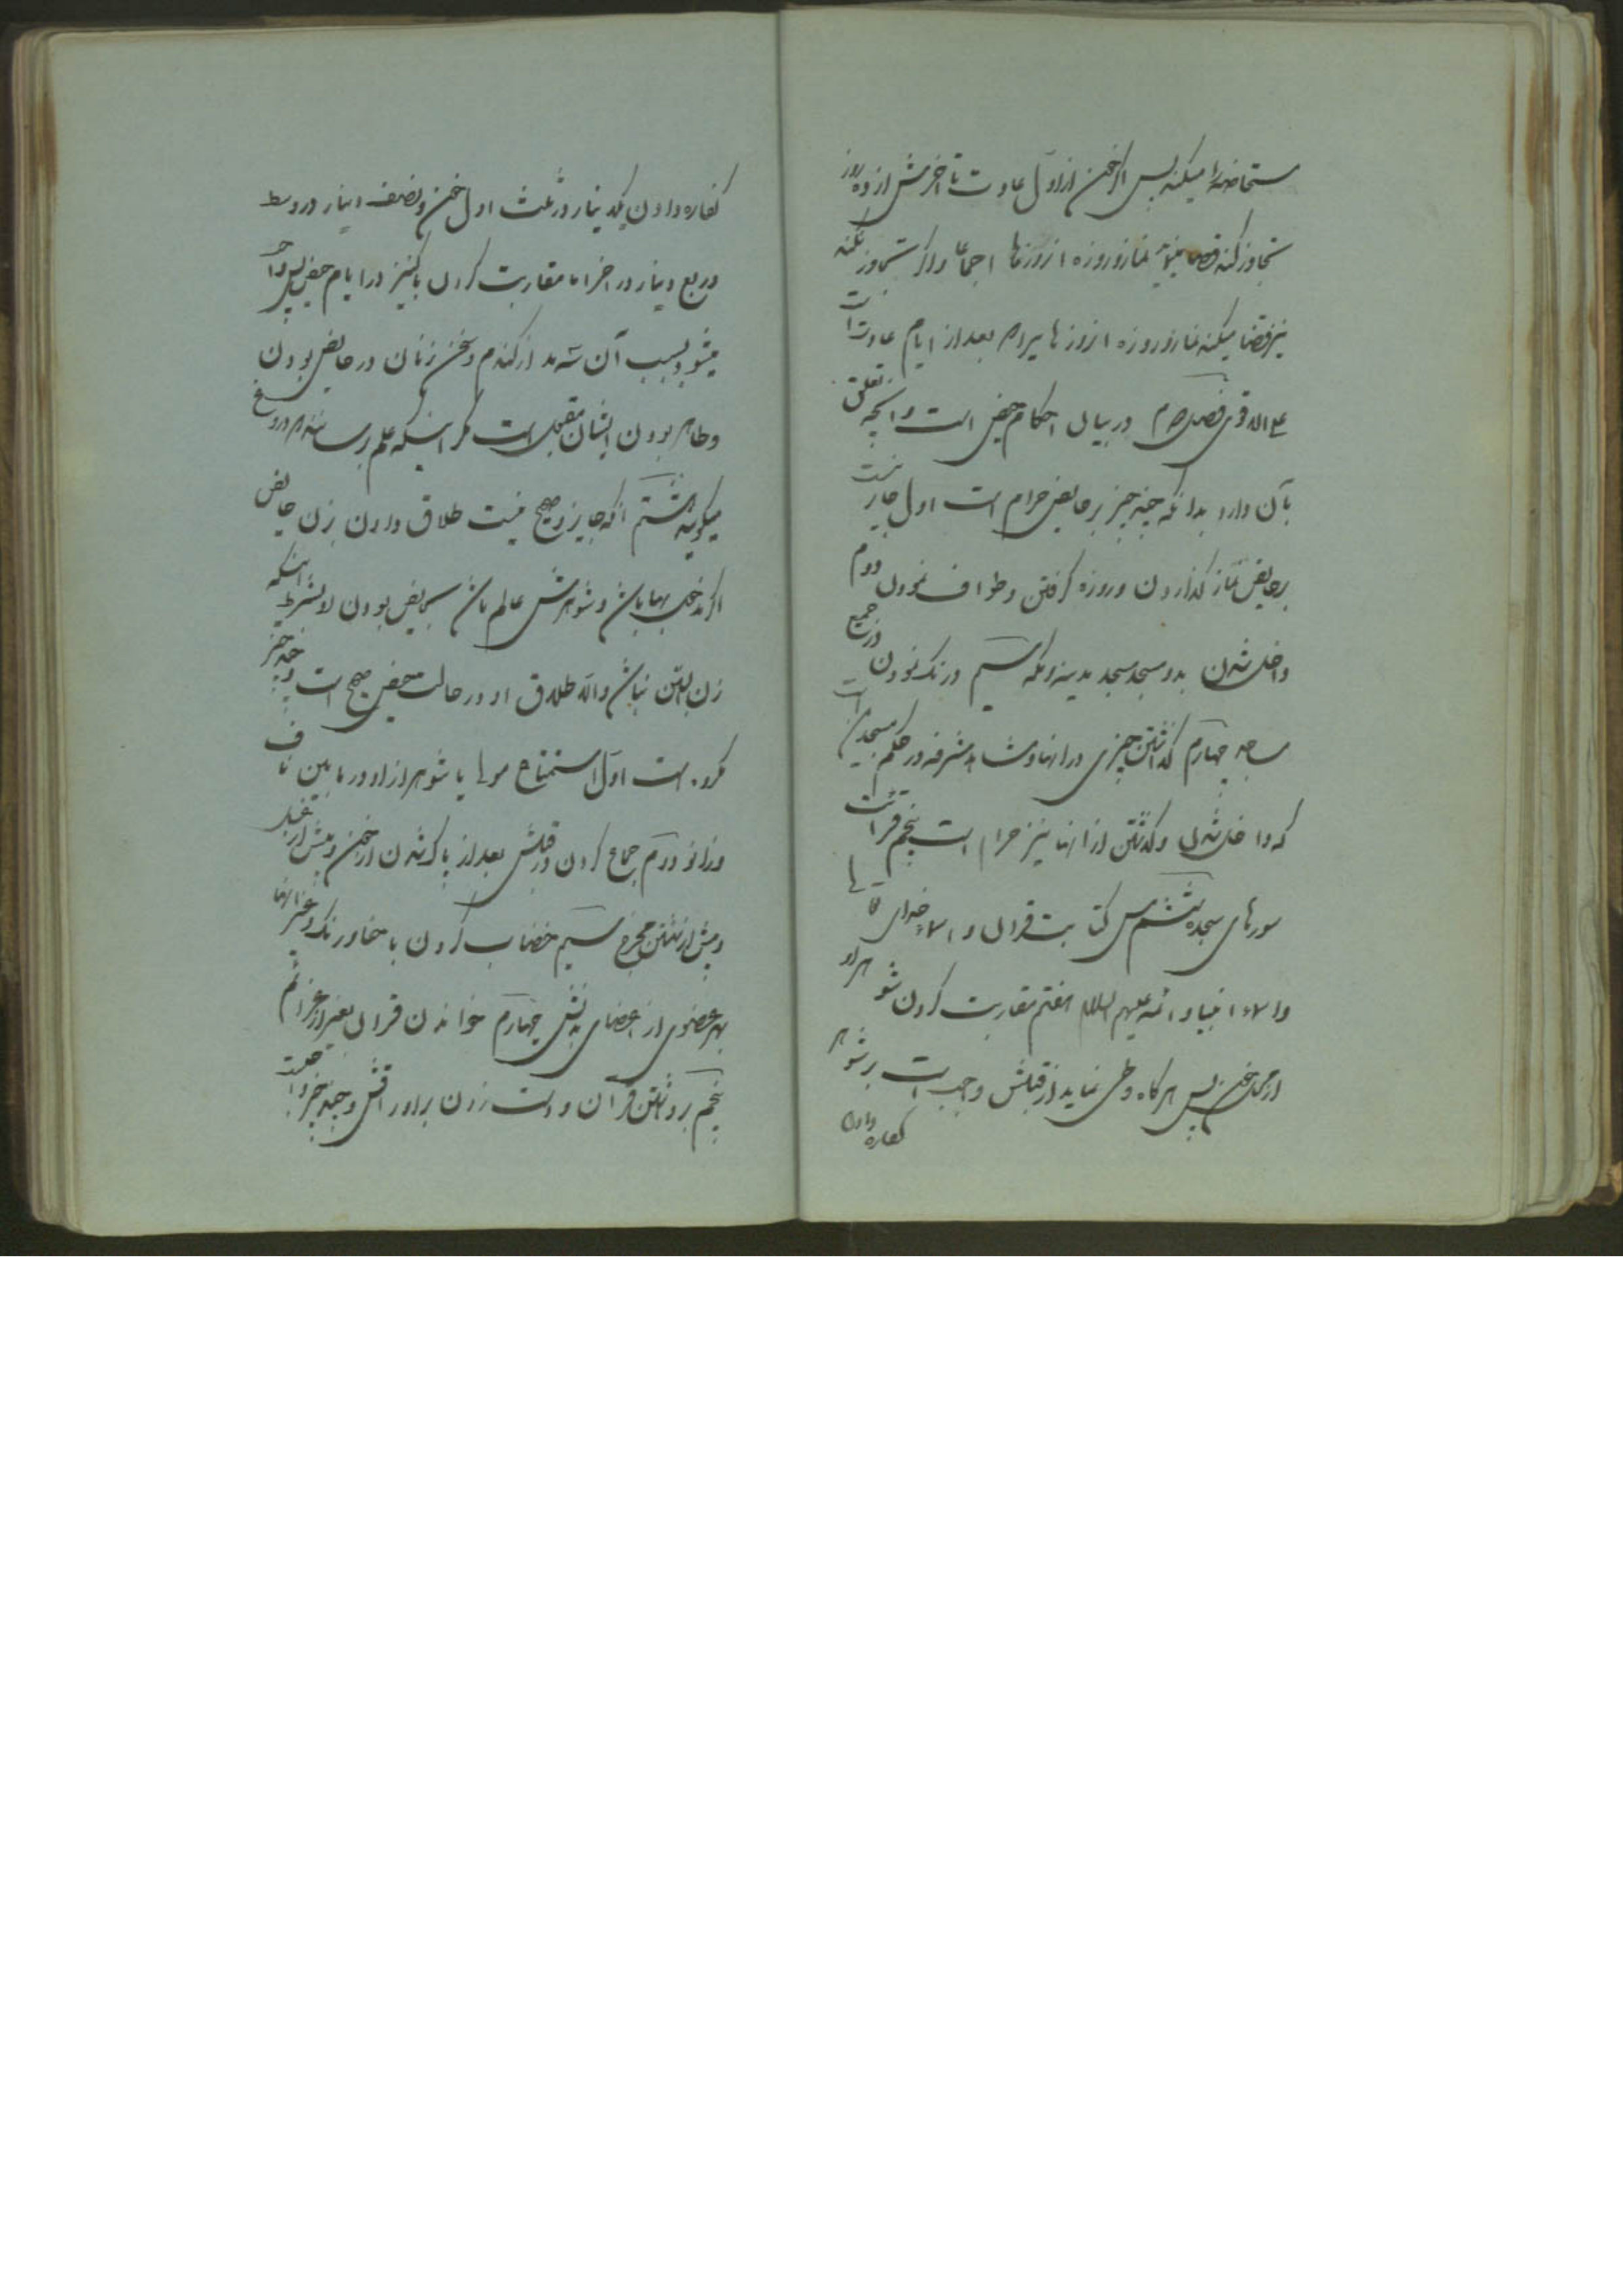 مستحاضه را میکند پس اگر خون از اول عادت تا آخرش از ده روز
تجاوز کند قضا نماز و روزه آنروزها اجماعا و اگر تجاوز نکند
نیز قضا میکند نماز و روزه آنروزها بعد از ایام عادت است
علی الاقوی فصل در بیان احکام حیض است و آنچه تعلق
بآن دارد بدانکه چند چیز بر حایض حرام است اول جایز نیست
بر حایض نماز گذاردن و روزه گرفتن و طواف نمودن دوم
داخل شدن بدو مسجد مسجد مدینه و مکه سیم درنگ نمودن در جمیع
مساجد چهارم گذاشتن چیزی در آنها و مشاهد مشرفه در حکم مسجدین است
که داخل شدن و گذشتن از آنها نیز حرام است پنجم قرائت
سورهای سجده ششم مس کتابت قران و اسماء خدای تعالی
و اسماء انبیا و ائمه علیهم السلام هفتم مقاربت کردن شوهر او
از محل خون پس هرگاه وطی نماید از قبلش واجب است بر شوهر
کفاره دادن
کفاره دادن یکدینار در ثلث اول خون و نصف دینار در وسط
و ربع دینار در آخر اما مقاربت کردن با کنیز در ایام حیض پس واجب
میشود بسبب آن سه مد از گندم و سخن زنان در حایض بودن
و طاهر بودن ایشان مقبول است مگر اینکه علم رساند که دروغ
میگویند هشتم آنکه جایز و صحیح نیست طلاق دادن زن حایض
اگر مدخول بها باشد و شوهرش عالم باشد بحایض بودن او بشرط اینکه
زن آبستن نباشد و الا طلاق او در حالت حیض صحیح است و چند چیز
مکروه است اول استمتاع مولی یا شوهر از او در مابین ناف
و زانو دوم جماع کردن در قبلش بعد از پاک شدن از خون و پیش از غسل
و پیش از شستن مخرج سیم خضاب کردن با حنا و رنک و غیر آنها
بهر عضوی از اعضای بدنش چهارم خواندن قران بغیر از عزائم
پنجم برداشتن قرآن و دست زدن بر اوراقش و چند چیز واجبست